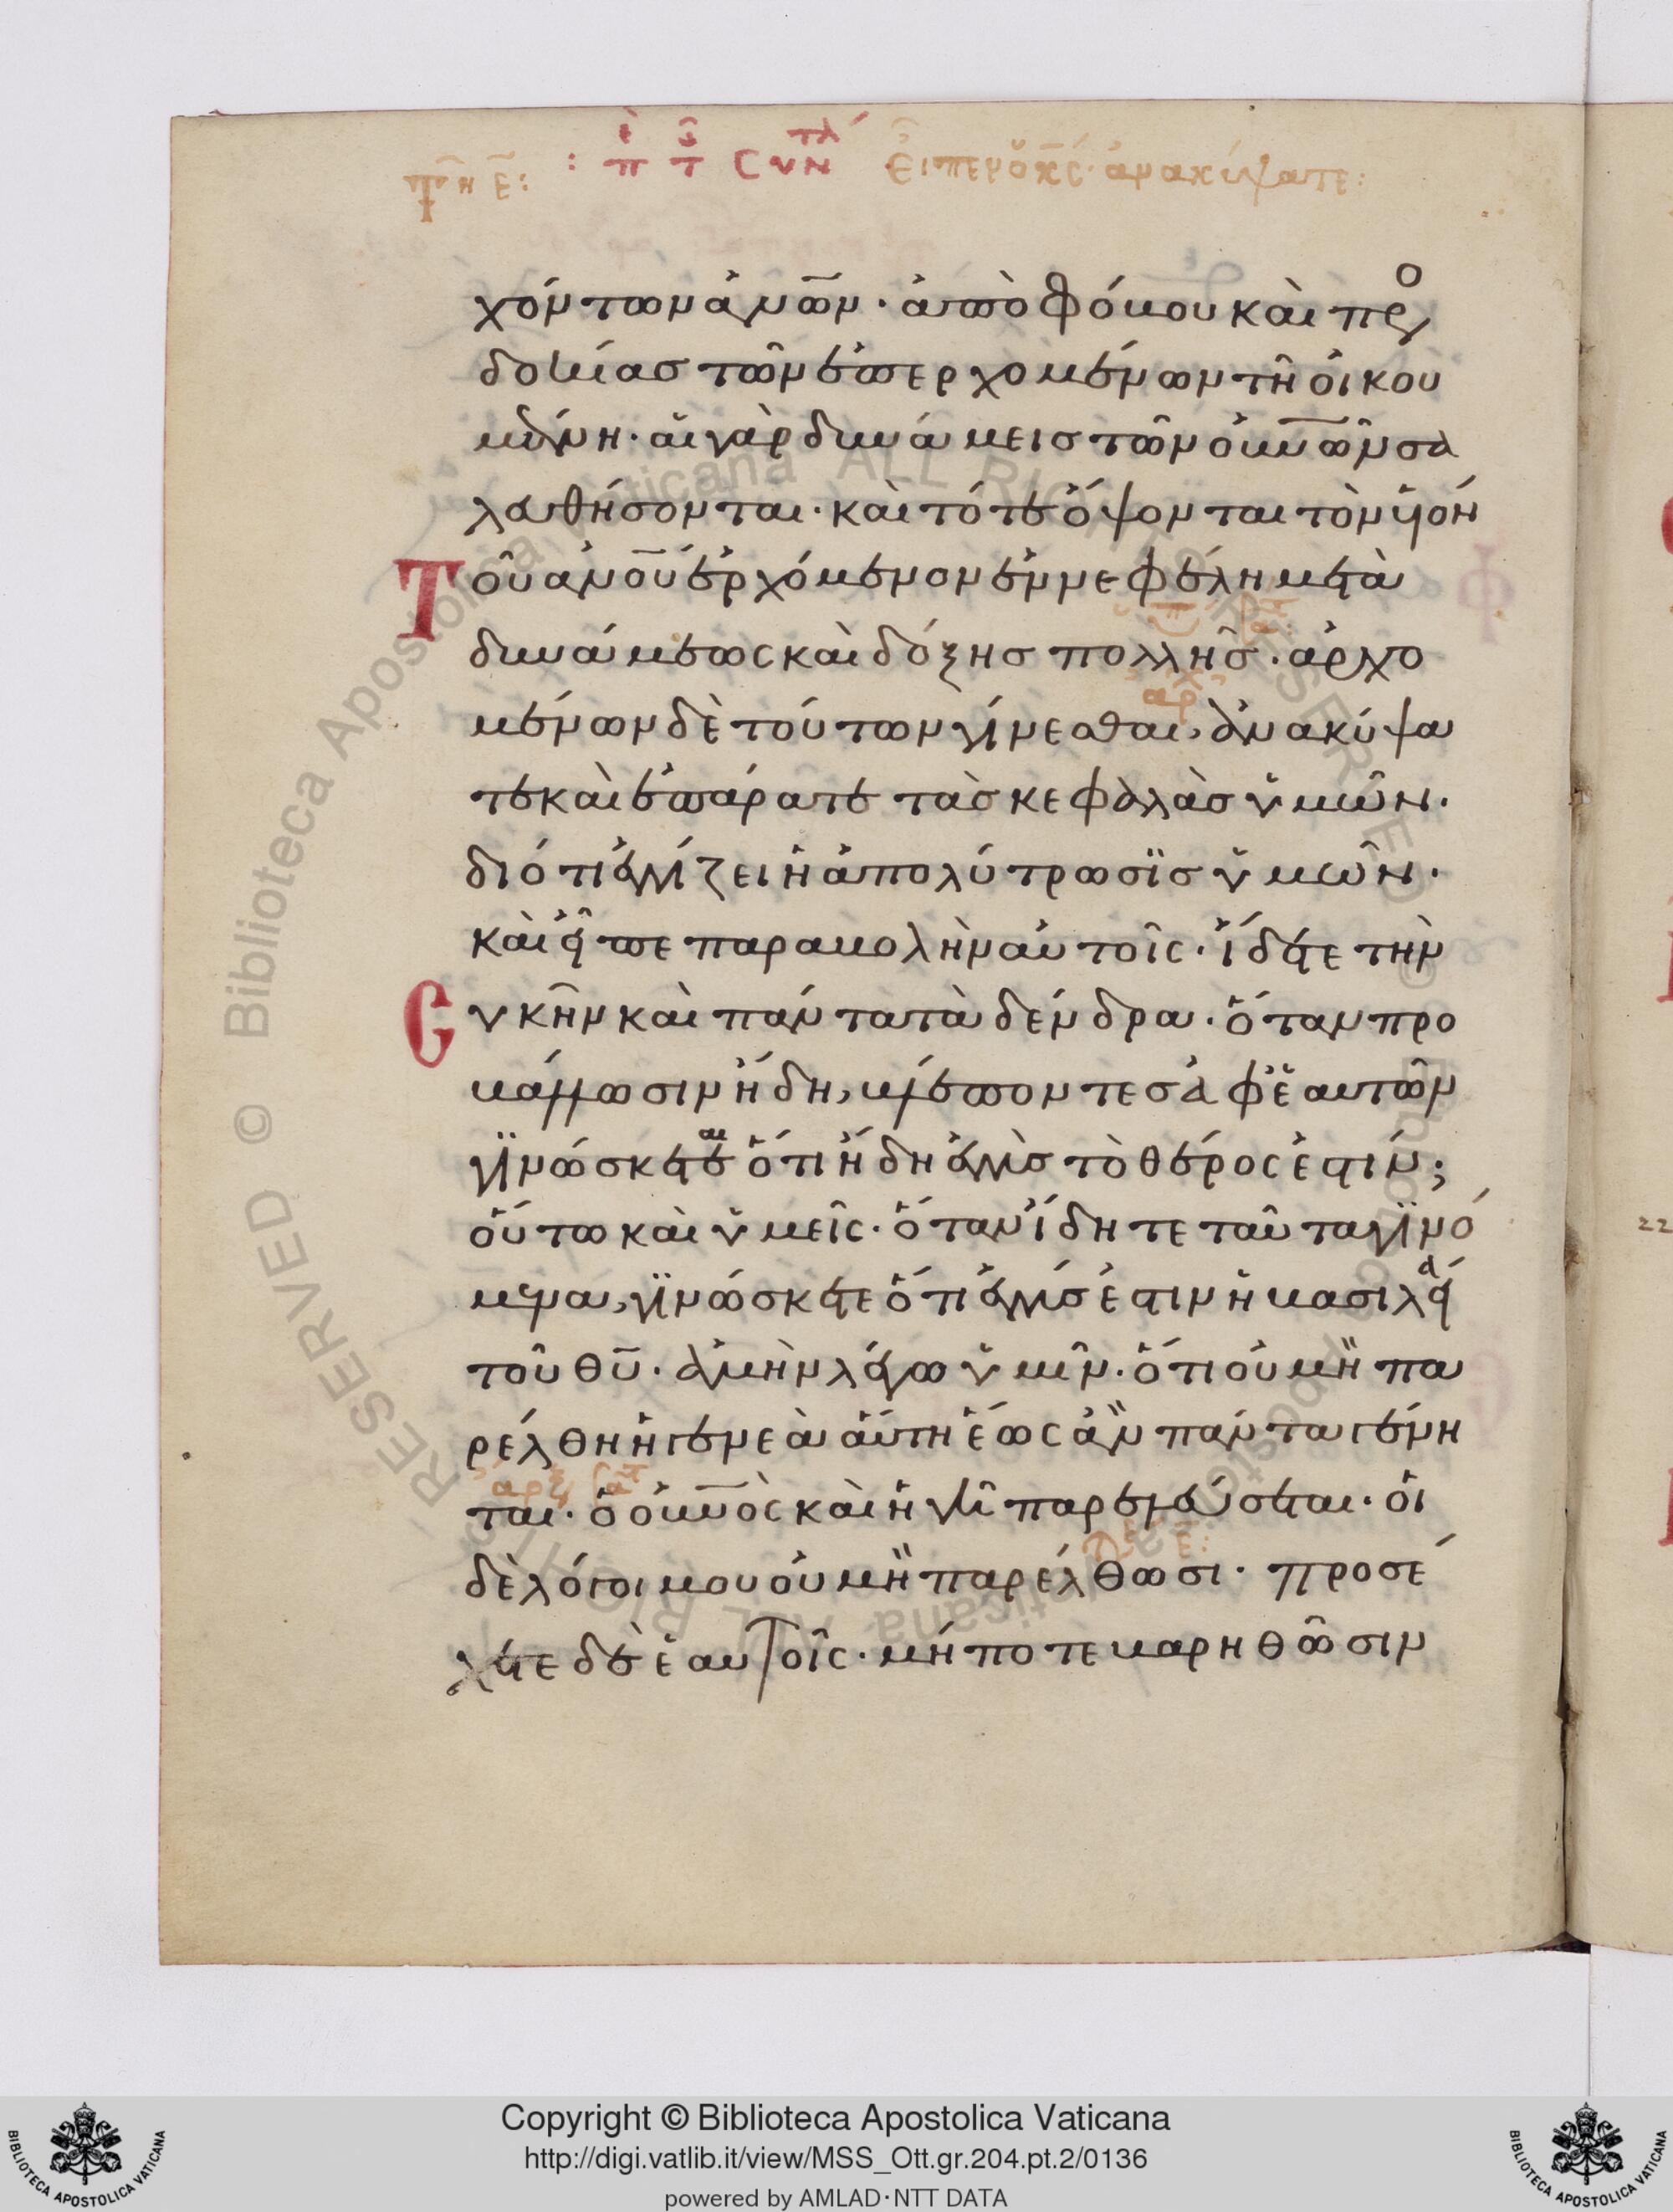 χόντων ἀνω̅ν· ἀπὸ φόβου καὶ προσ
δοκίας τῶν ἐπερχομένων τῆ οἰκου
μένη· αἱ γὰρ δυνάμεις τῶν οὐν̅ῶν σα
λευθήσονται· καὶ τότε ὄψονται τὸν υἱὸν
Τοῦ ἀνο̅υ ἐρχόμενον ἐν νεφέλη μετὰ
δυνάμεως καὶ δόξης πολλῆς· ἀρχο
μένων δὲ τούτων γίνεσθαι, ἀνακύψα
τε καὶ ἐπάρατε τὰς κεφαλὰς ὑμῶν·
διότι ἐγγίζει ἡ ἀπολύτρωσϊς ὑμῶν·
καὶ εἶπε παραβολὴν αὐτοῖς· ἴδετε τὴν
Cυκῆν καὶ πάντα τὰ δένδρα· ὅταν προ
βάλλωσιν ἤδη, βλέποντες ἀφ' ἑαυτῶν
γϊνώσκεται ὅτι ἤδη ἐγγὺς τὸ θέρος ἐστιν;
οὕτω καὶ ὑμεῖς· ὅταν ἴδητε ταῦτα γϊνό
μενα, γϊνώσκετε ὅτι ἐγγύς ἐστιν ἡ βασιλεία
τοῦ θυ̅· ἀμὴν λέγω ὑμῖν· ὅτι οὐ μὴ πα
ρέλθη ἡ γενεὰ αὕτη ἕως ἂν πάντα γένη
ται· ὁ οὐν̅ὸς καὶ ἡ γῆ παρελεύσεται· οἱ
δὲ λόγοι μου οὐ μὴ παρέλθωσι· προσέ
χετε δὲ ἑαυτοῖς· μήποτε βαρηθῶσιν
Copyright © Biblioteca Apostolica Vaticana
http://digi.vatlib.it/view/MSS_Ott.gr.204.pt.2/0136
powered by AMLAD·NTT DATA